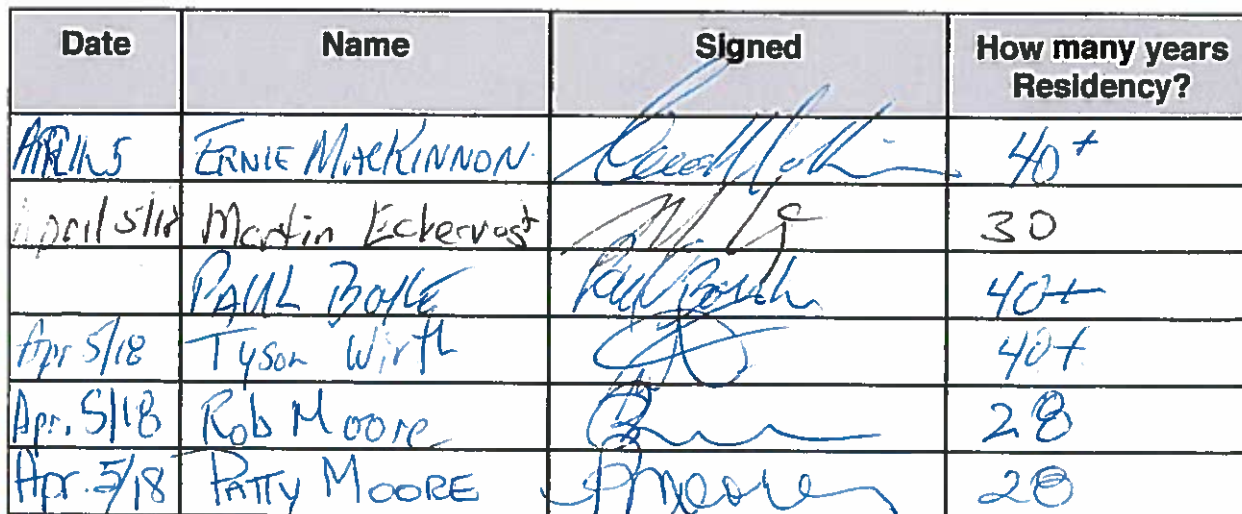 Date Name Signed How many years Residency?
APRIL 5 ERNIE MACKINNON 40+
April 5/18 Martin 30
PAUL BOYLE Paul Boyle 40+
Apr 5/18 Tyson Wirth 40+
Apr. 5/18 Rob Moore 28
Apr. 5/18 PATTY MOORE PMoore 28